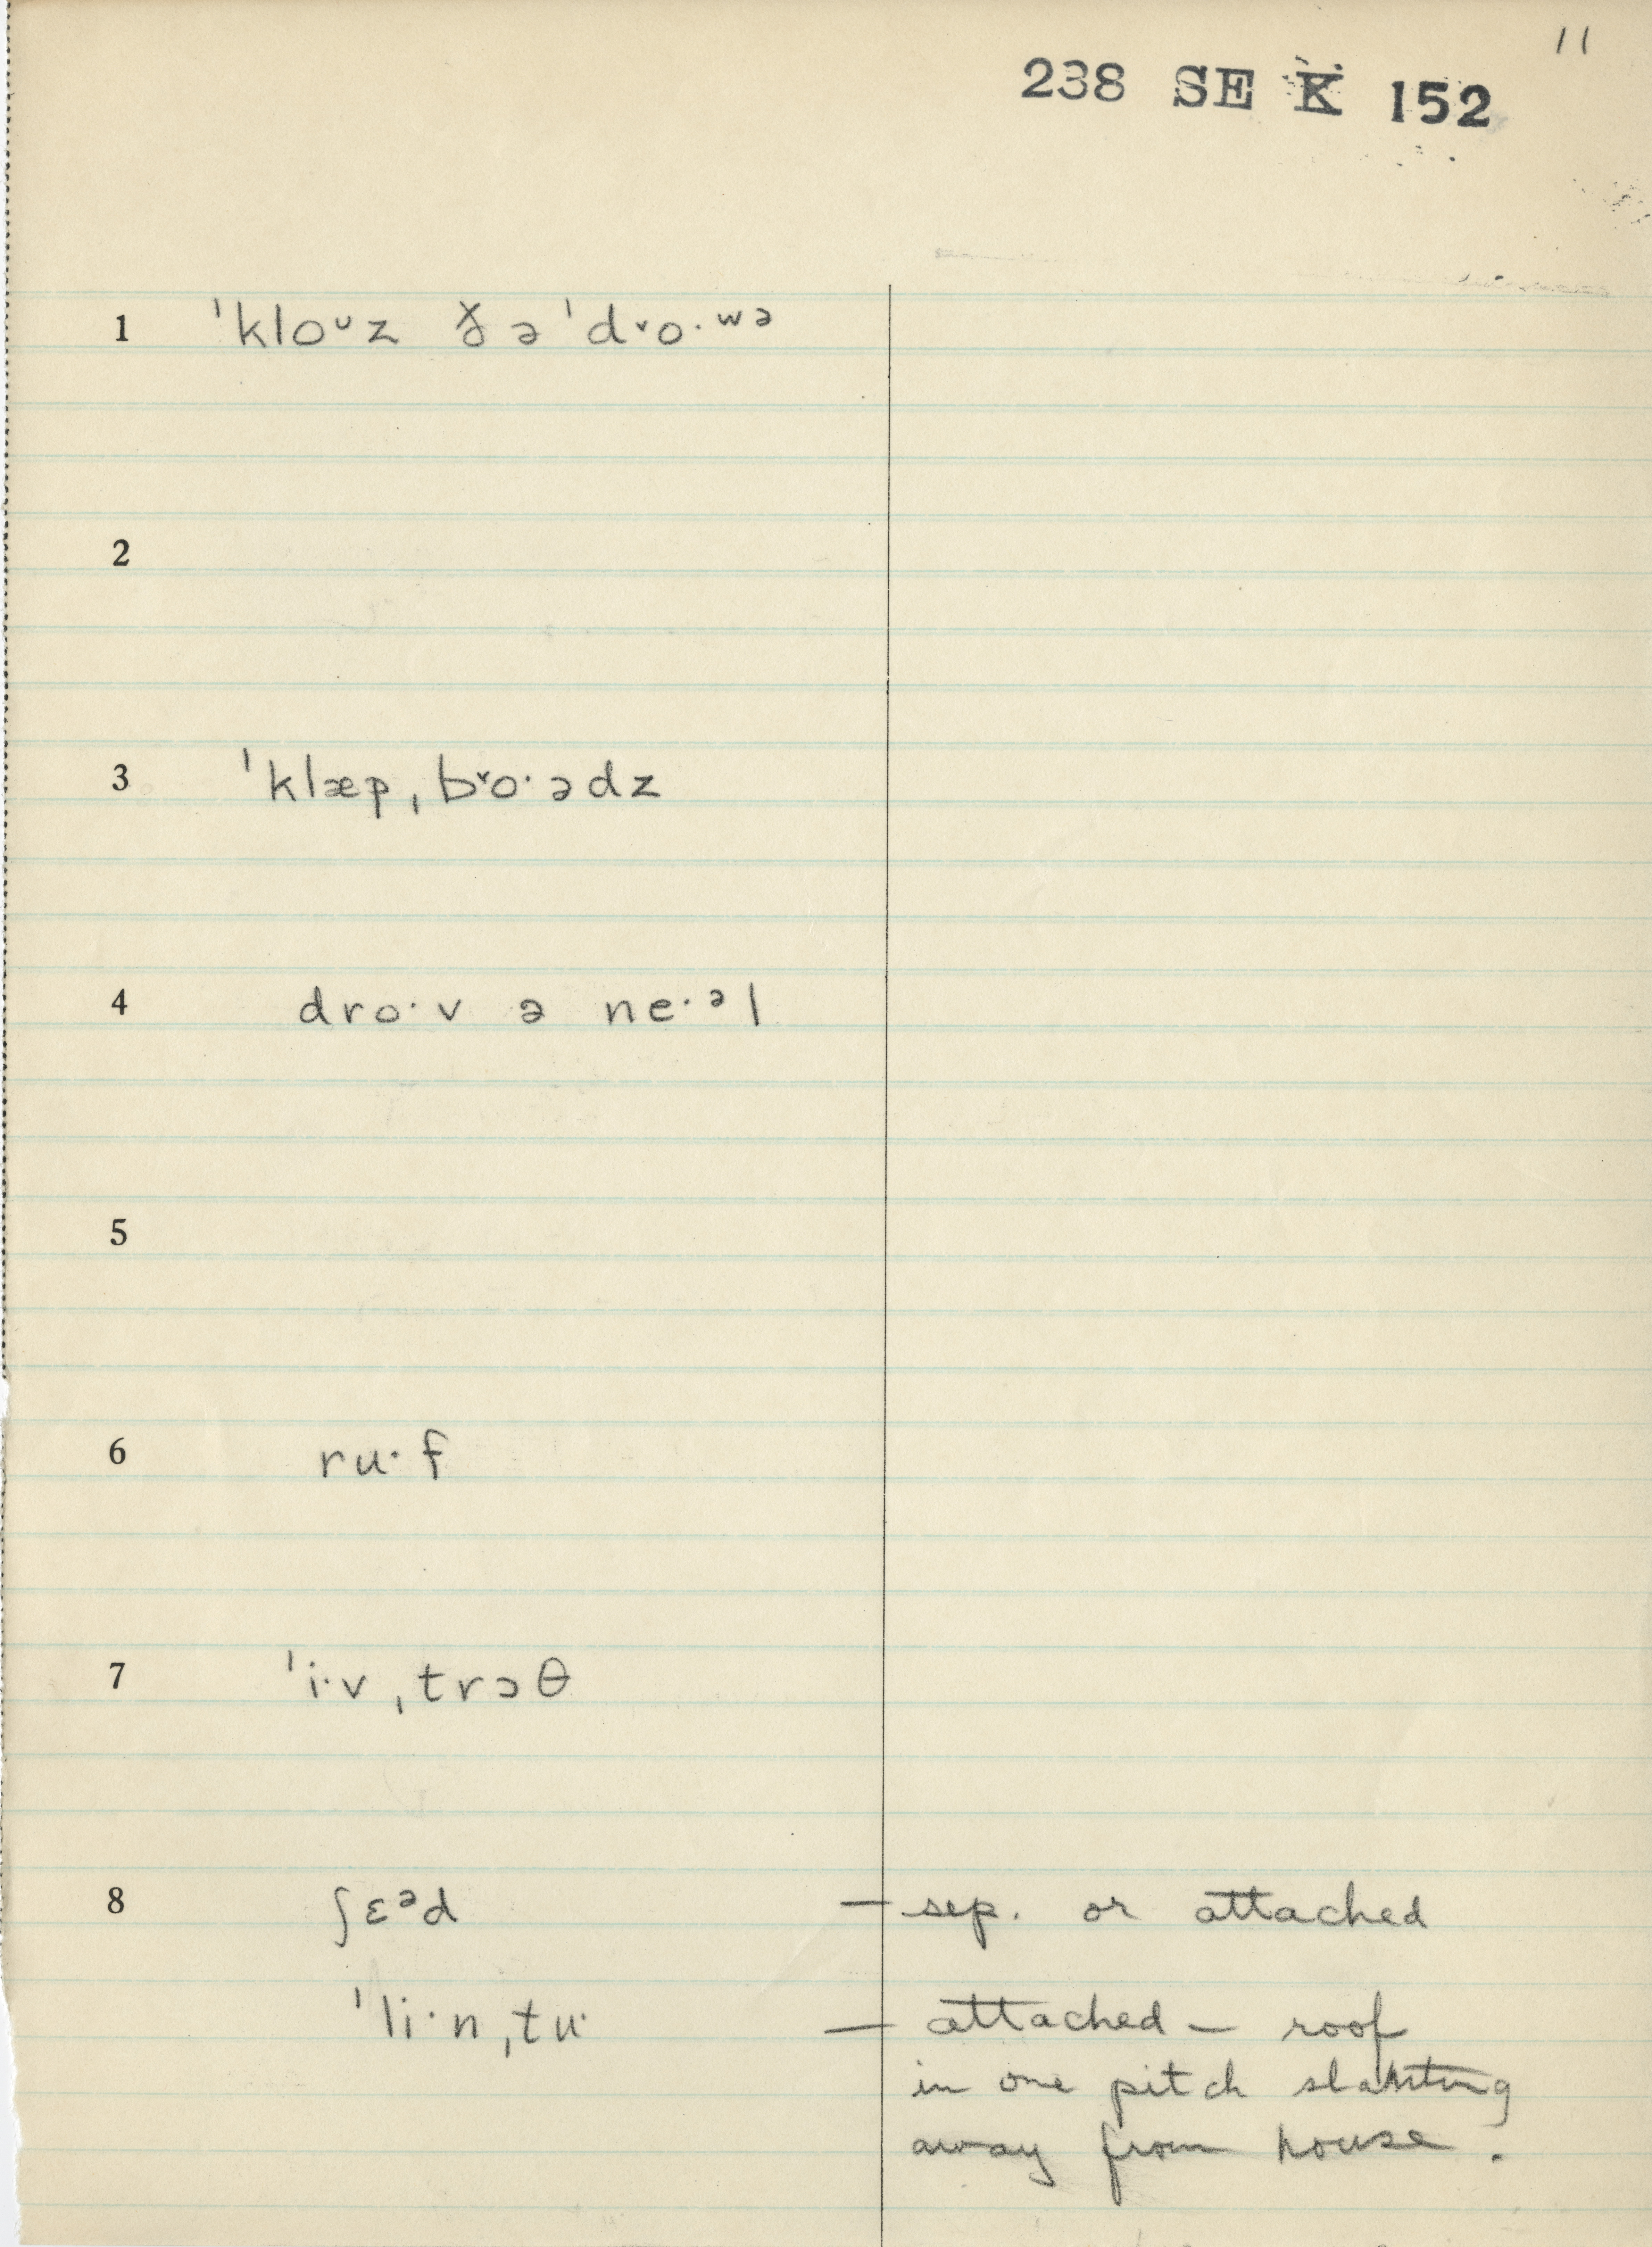 11
238 SE K 152
1 ˈkloᵘz ðə ˈd˅o·ʷᵊ
2
3 ˈklæpˌb˅o·ədz
4 dro·v ə ne·ᵊl
5
6 ru·f
7 ˈi·vˌtrɔθ
8 ʃɛᵊd — sep. or attached
ˈli·nˌtu· — attached — roof
in one pitch slanting
away from house.